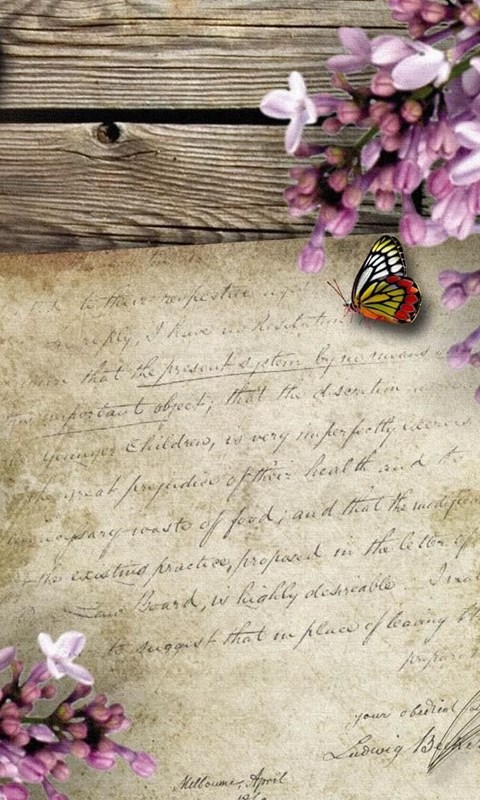 to their respective
reply, I have no hesitation
that the present system by no means
important object; that the discretion
younger children, is very imperfectly
the great prejudice of their health and the
unnecessary waste of food; and that the modification
the existing practice, proposed in the letter of
Law Board, is highly desireable
to suggest that in place of leaving
prepare
your obedient
Ludwig
Melbourne, April